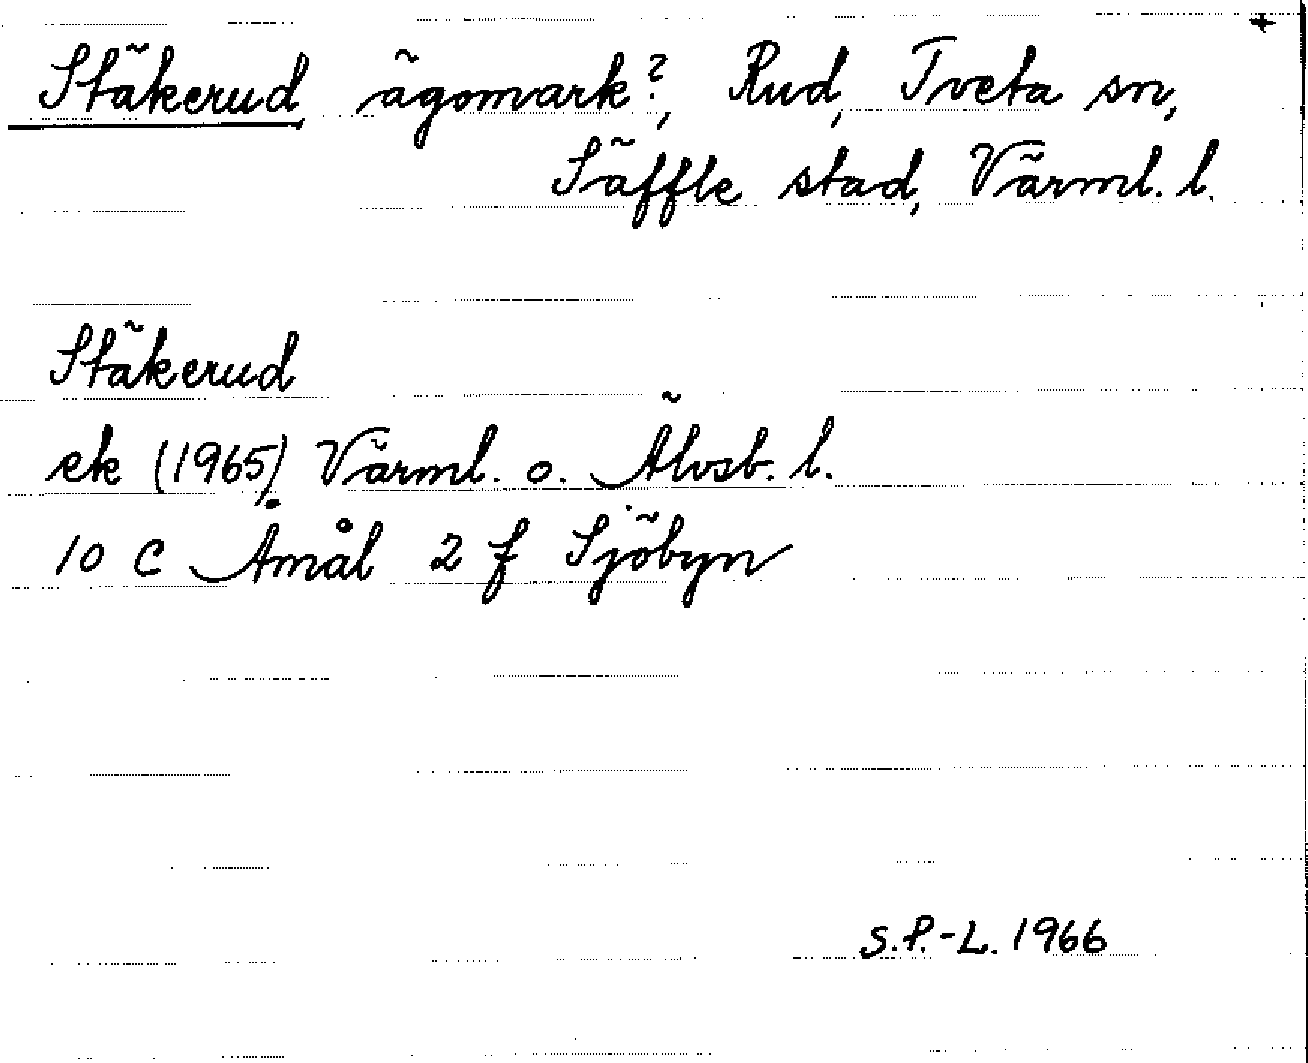 +
Stäkerud, ägomark?, Rud, Tveta sn,
Säffle stad, Värml. l.
Stäkerud
ek (1965) Värml. o. Älvsb. l.
10 C Åmål 2 f Sjöbyn
S.P.-L. 1966